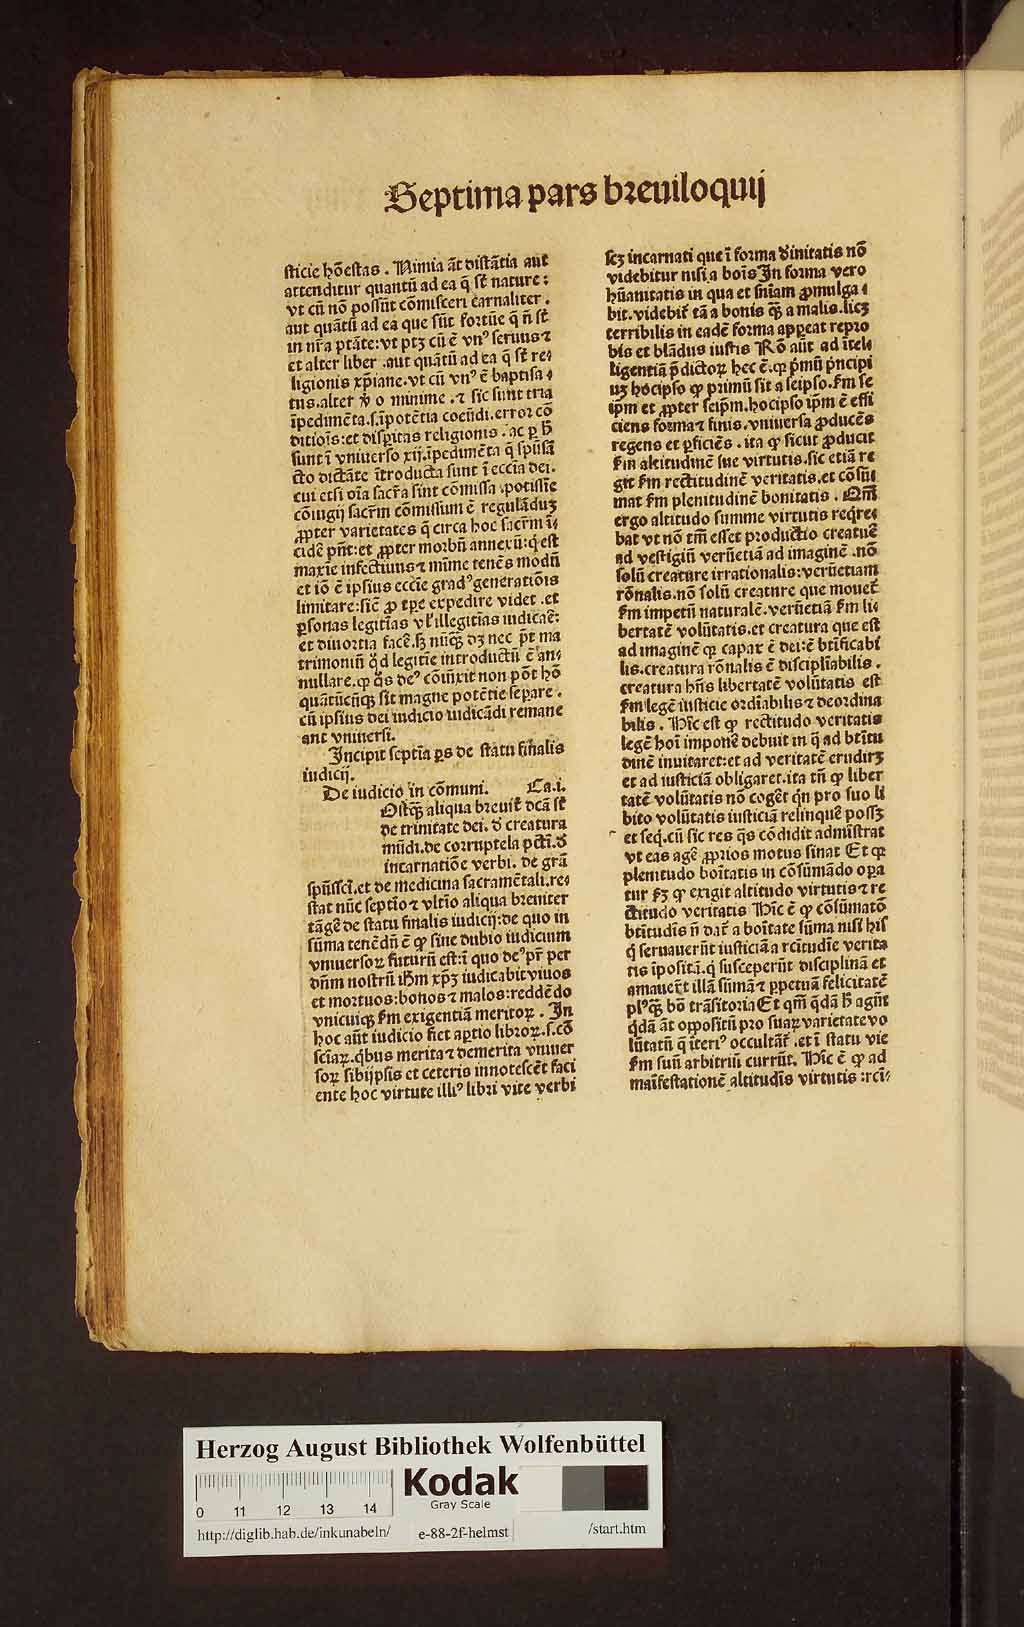 Septima pars breuiloquij
sticie hõestas. Nimia ãt distãtia aut
attenditur quantũ ad ea q̃ st̃ nature:
vt cũ nõ possũt cõmisceri carnaliter.
aut quãtũ ad ea que sũt fortũe q̃ ñ st̃
in nr̃a ptãte: vt ptꝫ cũ ẽ vnꝰ seruus ⁊
et alter liber. aut quãtũ ad ea q̃ st̃ re⸗
ligionis xp̃iane. vt cũ vnꝰ ẽ baptisa⸗
tus. alter ꝟo minime. ⁊ sic sunt tria
ĩpedimẽta. s. ĩpotẽtia coeũdi. error cõ
ditiõis: et disꝑitas religionis. ac ꝑ h̃
sunt ĩ vniuerso xij. ĩpedimẽta q̃ spũsã
cto dictãte ĩtroducta sunt ĩ eccĩa dei.
cui etsi oĩa sacr̃a sint cõmissa. potissĩe
cõiugij sacrm̃ cõmissum ẽ regulãduꝫ
ꝓpter varietates q̃ circa hoc sacrm̃ ĩ⸗
cidẽ pñt: et ꝓpter morbũ annexũ: q̇ est
maxĩe infectiuus ⁊ mĩme tenẽs modũ
et iõ ẽ ipsius eccĩe gradꝰ generatiõis
limitare: sic̃ ꝓ tp̃e expedire videt̃. et
ꝑsonas legitĩas vl̓ illegitĩas iudicaẽ:
et diuortia facẽ. sꝫ nũqꝫ dꝫ nec põt ma
trimoniũ q̇d legitĩe introductũ ẽ an⸗
nullare. ꝙ q̃s deꝰ cõiũxit non põt hõ
quãtũcũqꝫ sit magne potẽtie seꝑare.
cũ ipsius dei iudicio iudicãdi remane
ant vniuersi.
Incipit septĩa ꝑs de statu finalis
iudicij.
De iudicio in cõmuni. Ca. i.
Ostqꝫ aliqua breuit̃ dcã st̃
de trinitate dei. d̓ creatura
mũdi. de corruptela pcti̓. d̓
incarnatiõe verbi. de grã
spũssci̓. et de medicina sacramẽtali. re⸗
stat nũc septĩo ⁊ vltĩo aliqua breuiter
tãgẽ de statu finalis iudicij: de quo in
sũma tenẽdũ ẽ ꝙ sine dubio iudicium
vniuersoꝝ futurũ est: ĩ quo deꝰ pr̃ per
dñm nostrũ ih̃m xp̃ꝫ iudicabit viuos
et mortuos: bonos ⁊ malos: reddẽdo
vnicuiqꝫ s̃m exigentiã meritoꝝ. In
hoc aũt iudicio fiet aꝑtio libroꝝ. s. cõ
sciaꝝ. q̇bus merita ⁊ demerita vniuer
soꝝ sibijpsis et ceteris innotescẽt faci
ente hoc virtute illiꝰ libri vite verbi
scꝫ incarnati que ĩ forma diuinitatis nõ
videbitur nisi a boĩs In forma vero
hũanitatis in qua et sniam ꝓmulga⸗
bit. videbit̃ tã a bonis qꝫ a malis. licꝫ
terribilis in eadẽ forma appeat repro
bis et blãdus iustis Rõ aũt ad ĩtelli
ligentiã p̃dictoꝝ hec ẽ. ꝙ pͥmũ pͥncipi
uꝫ hocipso ꝙ primũ sit a seipso. s̃m se
ip̃m et ꝓpter seip̃m. hocipso ip̃m ẽ effi
ciens forma ⁊ finis. vniuersa ꝓducẽs
regens et ꝑficiẽs. ita ꝙ sicut ꝓducit
s̃m altitudinẽ sue virtutis. sic etiã re
git s̃m rectitudinẽ veritatis. et cõsũ
mat s̃m plenitudinẽ bonitatis. Qm̃
ergo altitudo summe virtutis reqͥre⸗
bat vt nõ tm̃ esset productio creatuẽ
ad vestigiũ verũetiã ad imaginẽ. nõ
solũ creature irrationalis: verũetiam
rõnalis. nõ solũ creature que mouet̃
s̃m impetũ naturalẽ. verũetiã s̃m li⸗
bertatẽ volũtatis. et creatura que est
ad imaginẽ ꝙ capax ẽ dei: ẽ btĩficabi
lis. creatura rõnalis ẽ disciplĩabilis.
creatura hñs libertatẽ volũtatis est
s̃m legẽ iusticie ordĩabilis ⁊ deordina
bilis. Hĩc est ꝙ rectitudo veritatis
legẽ hoĩ imponẽ debuit in q̃ ad btĩtu
dinẽ inuitaret: et ad veritatẽ erudirꝫ
et ad iusticiã obligaret. ita tñ ꝙ liber
tatẽ volũtatis nõ cogẽt qͥn pro suo li
bito volũtatis iusticiã relinquẽ possꝫ
et seq̃. cũ sic res q̃s cõdidit admĩstrat
vt eas agẽ ꝓprios motus sinat Et ꝙ
plenitudo boĩtatis in cõsũmãdo oꝑa
tur sꝫ ꝙ exigit altitudo virtutis ⁊ re
ctitudo veritatis Hĩc ẽ ꝙ cõsũmatõ
btĩtudĩs ñ dat̃ a boĩtate sũma nisi his
q̇ seruauerũt iusticiã a rcĩtudĩe verita
tis ĩpositã. q̇ susceperũt disciplinã et
amauer̃t illã sũmã ⁊ ꝑpetuã felicitatẽ
plꝰqꝫ bõ trãsitoria Et qm̃ q̇dã h̃ agũt
q̇dã ãt oppositũ pro suaꝝ varietate vo
lũtatũ q̃ ĩteriꝰ occultãt̃. et ĩ statu vie
s̃m suũ arbitriũ currũt. Hĩc ẽ ꝙ ad
maĩfestationẽ altitudĩs virtutis: rcĩ⸗
Herzog August Bibliothek Wolfenbüttel
Kodak
Gray Scale
0 11 12 13 14
http://diglib.hab.de/inkunabeln/ e-88-2f-helmst /start.htm